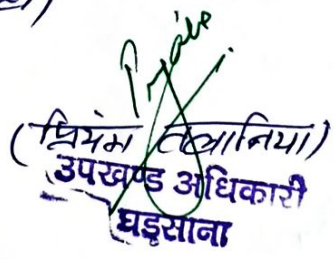 (प्रियंम तलानिया)
उपखण्ड अधिकारी
घड़साना